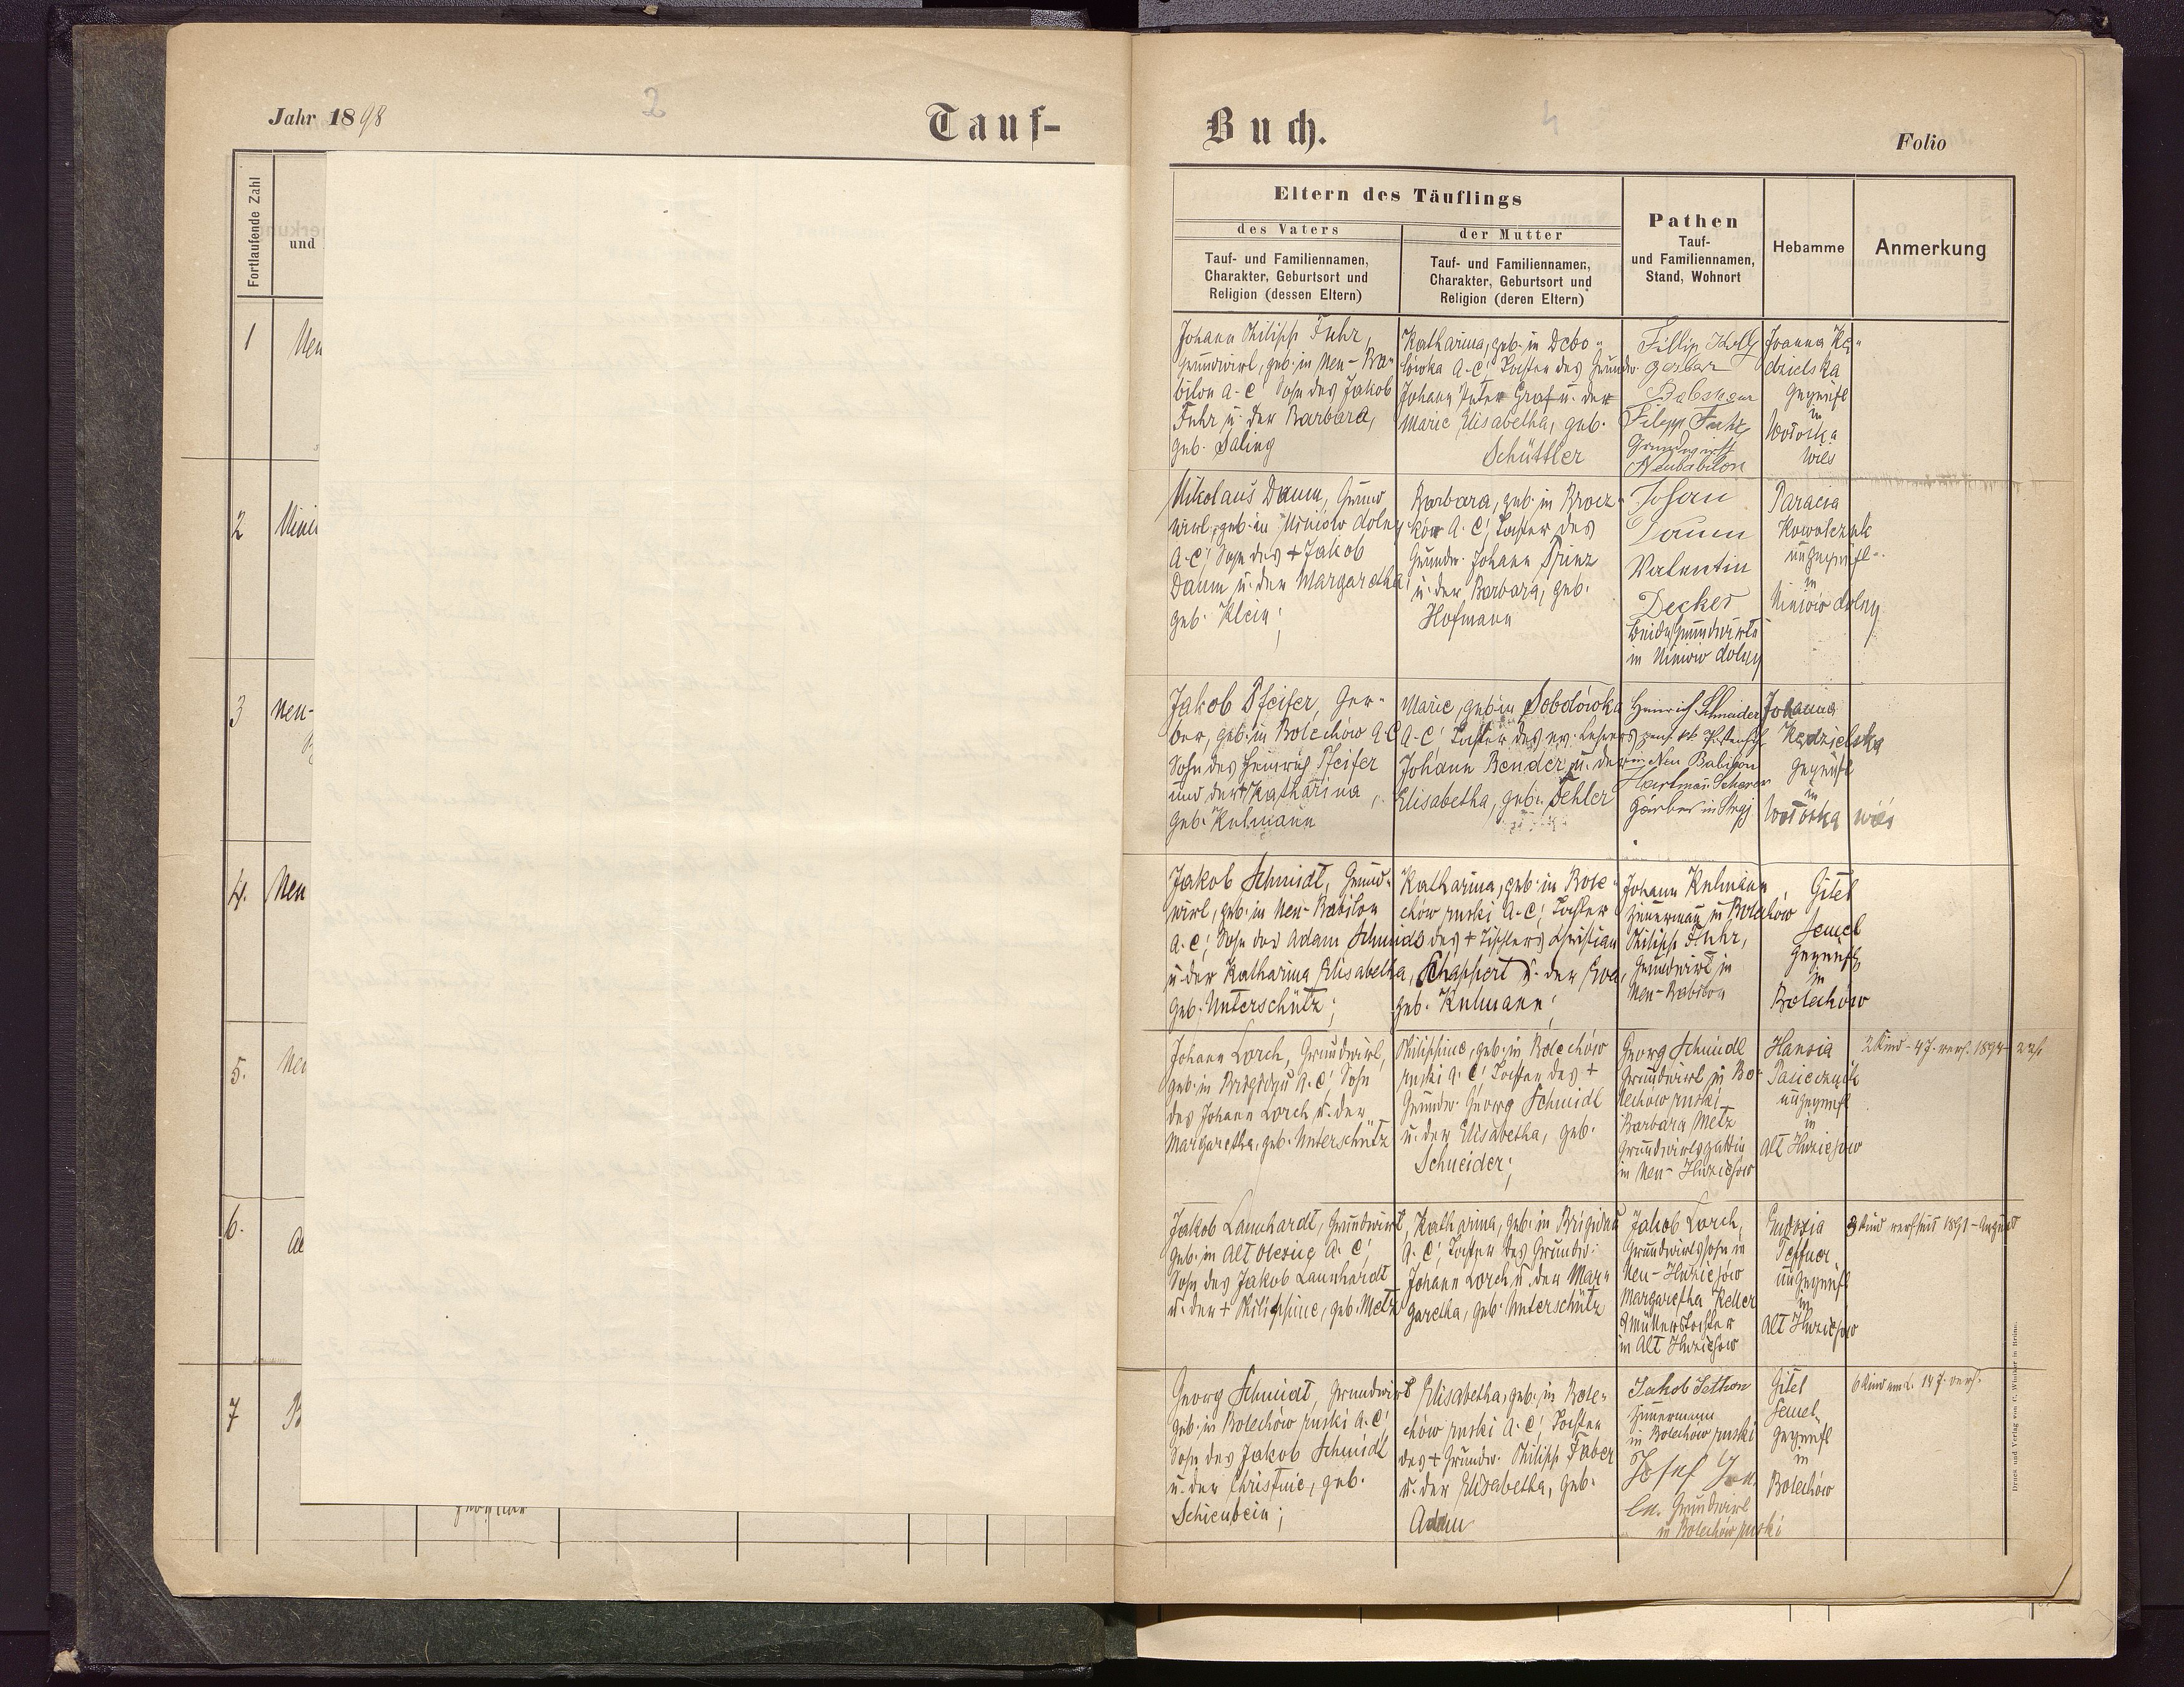 Jahr 1898
2
Tauf-
Fortlaufende Zahl
und
1
Neu
2
3
Neu-
4.
Neu
5.
Neu
6.
7
Buch.
4
Folio
Eltern des Täuflings
des Vaters
der Mutter
Tauf- und Familiennamen,
Charakter, Geburtsort und
Religion (dessen Eltern)
Tauf- und Familiennamen,
Charakter, Geburtsort und
Religion (deren Eltern)
Pathen
Tauf-
und Familiennamen,
Stand, Wohnort
Hebamme
Anmerkung
Johann Philipp Fuhr,
Grundwirt, geb. in Neu-Ba-
bilon A.C! Sohn des Jakob
Fuhr u. der Barbara,
geb. Saling
Katharina, geb. in
lówka A.C! Tochter des Grundw.
Johann Peter Graf u. der
Marie Elisabetha, geb.
Schüttler
Fillip
Gerber
Filipp Fuhr
Grundwirth
Neubabilon
Joanna Kę-
dzielska
geprüft
in
Wołoska
wieś
Nikolaus Daum, Grund
wirt, geb. in Niniów dolny
A.C! Sohn des + Jakob
Daum u. der Margaretha
geb. Klein;
Barbara, geb. in Brocz-
ków A.C! Tochter des
Grundw. Johann Prinz
u. der Barbara, geb.
Hofmann
Johan
Daum
Valentin
Decker
beide Grundwirte
in Niniów dolny
Paracia
Kowalczuk
ungeprüft
in
Niniów dolny
Jakob Pfeifer, Ger-
ber, geb. in Bolechów A.C
Sohn des Heinrich Pfeifer
und der + Katharina,
geb. Kulmann
Marie, geb. in Sobolówka
A.C! Tochter des ev. Lehrers
Johann Bender u. der
Elisabetha, geb. Sehler
Heinrich Schneider
pens. kk
in Neu Babilon
Hartman Scherer
Gärber in Stryj
Johanna
Kędzielska
geprüft
in
Wołoska wieś
Jakob Schmidt, Grund-
wirt, geb. in Neu-Babilon
A.C! Sohn des Adam Schmidt
u. der Katharina Elisabetha,
geb. Unterschütz;
Katharina, geb. in Bole-
chów ruski A.C! Tochter
des + Tischlers Christian
Schappert u. der Eva,
geb. Kulmann;
Johann Kulmann,
Zimmermann in Bolechów
Philipp Fuhr,
Grundwirt in
Neu-Babilon
Gitel
Semel
geprüft
in
Bolechów
Johann Lorch, Grundwirt,
geb. in Brigidau A.C! Sohn
des Johann Lorch u. der
Margaretha, geb. Unterschütz
Philippine, geb. in Bolechów
ruski A.C! Tochter des +
Grundw. Georg Schmidt
u. der Elisabetha, geb.
Schneider;
Georg Schmidt
Grundwirt in Bo-
lechów ruski
Barbara Metz
Grundwirtsgattin
in Neu-Hoziejów
Hansia
Pasiecznik
ungeprüft
in
Alt Hoziejów
2 Kind - 4 J. verh. 1894
Jakob Launhardt, Grundwirt,
geb. in Alt Oleziug A.C!
Sohn des Jakob Launhardt
u. der + Philippine, geb. Metz
Katharina, geb. in Brigidau
A.C! Tochter des Grundw.
Johann Lorch u. der Mar-
garetha, geb. Unterschütz
Jakob Lorch,
Grundwirtssohn in
Neu-Hoziejów
Margaretha Keller
Müllerstochter
in Alt Hoziejów
Eudoxia
ungeprüft
in
Alt Hoziejów
3 Kind verh. seit 1891 - August
Georg Schmidt, Grundwirt
geb. in Bolechów ruski A.C!
Sohn des Jakob Schmidt
u. der Christine, geb.
Schienbein;
Elisabetha, geb. in Bole-
chów ruski A.C! Tochter
des + Grundw. Philipp Faber
u. der Elisabetha, geb.
Adam
Jakob
Zimmermann
in Bolechów ruski
Josef
Grundwirt
in Bolechów ruski
Gitel
Semel,
geprüft
in
Bolechów
6 Kind 14 J. verh.